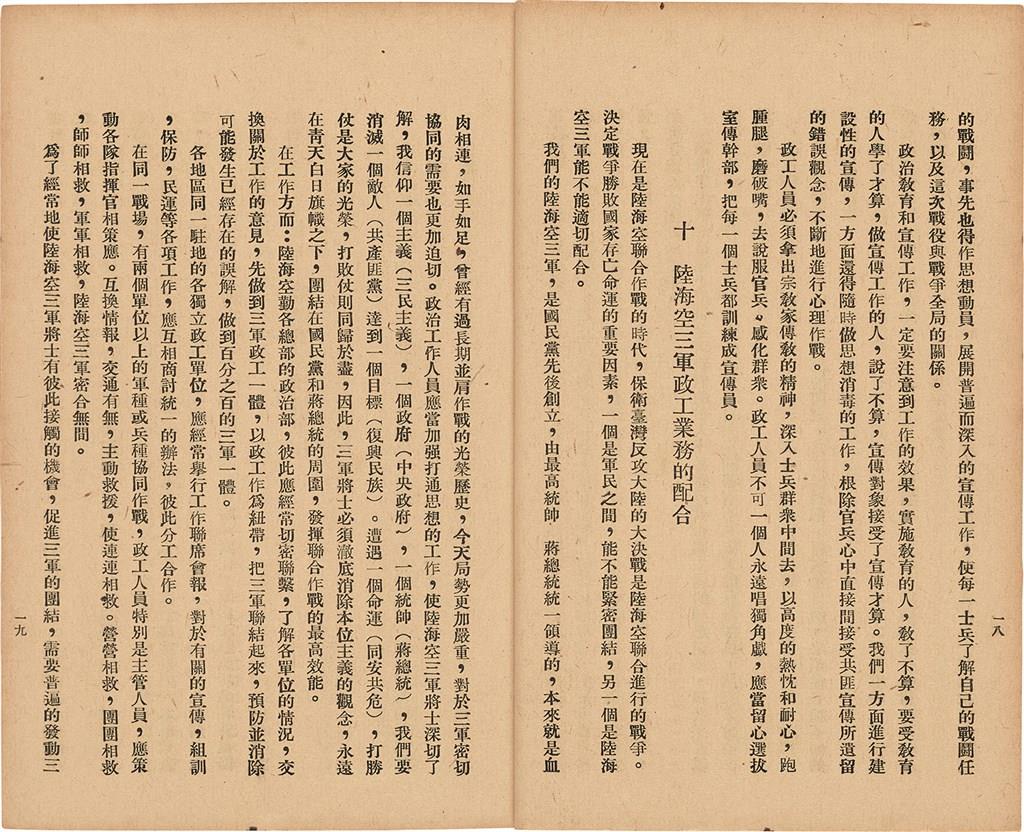 的戰鬪，事先也得作思想動員，展開普遍而深入的宣傳工作，使每一士兵了解自己的戰鬪任
務，以及這次戰役與戰爭全局的關係。
政治敎育和宣傳工作，一定要注意到工作的效果，實施敎育的人，敎了不算，要受敎育
的人學了才算，做宣傳工作的人，說了不算，宣傳對象接受了宣傳才算。我們一方面進行建
設性的宣傳，一方面還得隨時做思想消毒的工作，根除官兵心中直接間接受共匪宣傳所遺留
的錯誤觀念，不斷地進行心理作戰。
政工人員必須拿出宗敎家傳敎的精神，深入士兵群衆中間去，以高度的熱忱和耐心，跑
腫腿，磨破嘴，去說服官兵、感化群衆。政工人員不可一個人永遠唱獨角戲，應當留心選拔
室傳幹部，把每一個士兵都訓練成宣傳員。
十　陸海空三軍政工業務的配合
現在是陸海空聯合作戰的時代，保衛臺灣反攻大陸的大決戰是陸海空聯合進行的戰爭。
決定戰爭勝敗國家存亡命運的重要因素，一個是軍民之間，能不能緊密團結，另一個是陸海
空三軍能不能適切配合。
我們的陸海空三軍，是國民黨先後創立，由最高統帥　蔣總統統一領導的，本來就是血
一八
肉相連，如手如足，曾經有過長期並肩作戰的光榮歷史，今天局勢更加嚴重，對於三軍密切
協同的需要也更加迫切。政治工作人員應當加强打通思想的工作，使陸海空三軍將士深切了
解，我信仰一個主義（三民主義），一個政府（中央政府），一個統帥（蔣總統），我們要
消滅一個敵人（共產匪黨）達到一個目標（復興民族）。遭遇一個命運（同安共危），打勝
仗是大家的光榮，打敗仗則同歸於盡，因此，三軍將士必須澈底消除本位主義的觀念，永遠
在靑天白日旗幟之下，團結在國民黨和蔣總統的周圍，發揮聯合作戰的最高效能。
在工作方面：陸海空勤各總部的政治部，彼此應經常切密聯繫，了解各單位的情況，交
換關於工作的意見，先做到三軍政工一體，以政工作爲紐帶，把三軍聯結起來，預防並消除
可能發生已經存在的誤解，做到百分之百的三軍一體。
各地區同一駐地的各獨立政工單位，應經常舉行工作聯席會報，對於有關的宣傳，組訓
，保防，民運等各項工作，應互相商討統一的辦法，彼此分工合作。
在同一戰場，有兩個單位以上的軍種或兵種協同作戰，政工人員特別是主管人員，應策
動各隊指揮官相策應。互換情報，交通有無，主動救援，使連連相救。營營相救，團團相救
，師師相救，軍軍相救，陸海空三軍密合無間。
爲了經常地使陸海空三軍將士有彼此接觸的機會，促進三軍的團結，需要普遍的發動三
一九